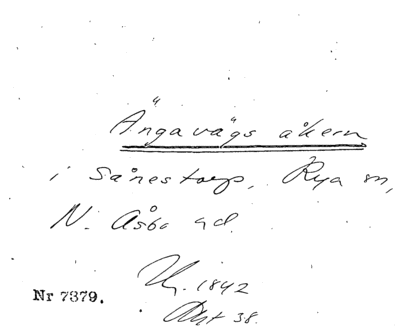 Ängavägs åkern
i Sånestorp, Rya sn,
N. Åsbo hd.
Uj. 1842
Akt 38.
Nr 7379.